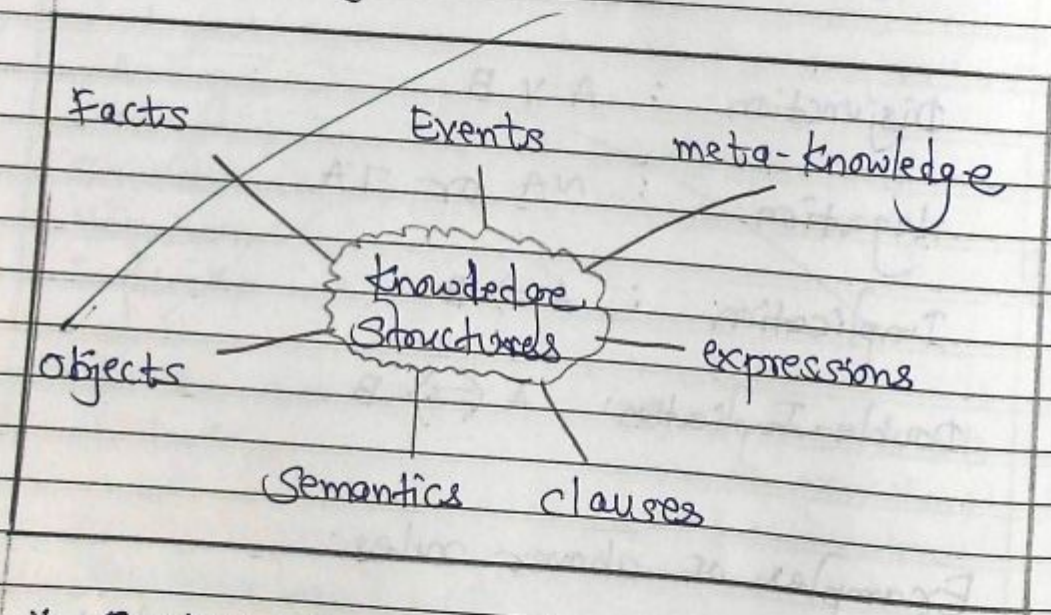 Facts
Events
meta-knowledge
Knowledge
Structures
Objects
expressions
Semantics
clauses